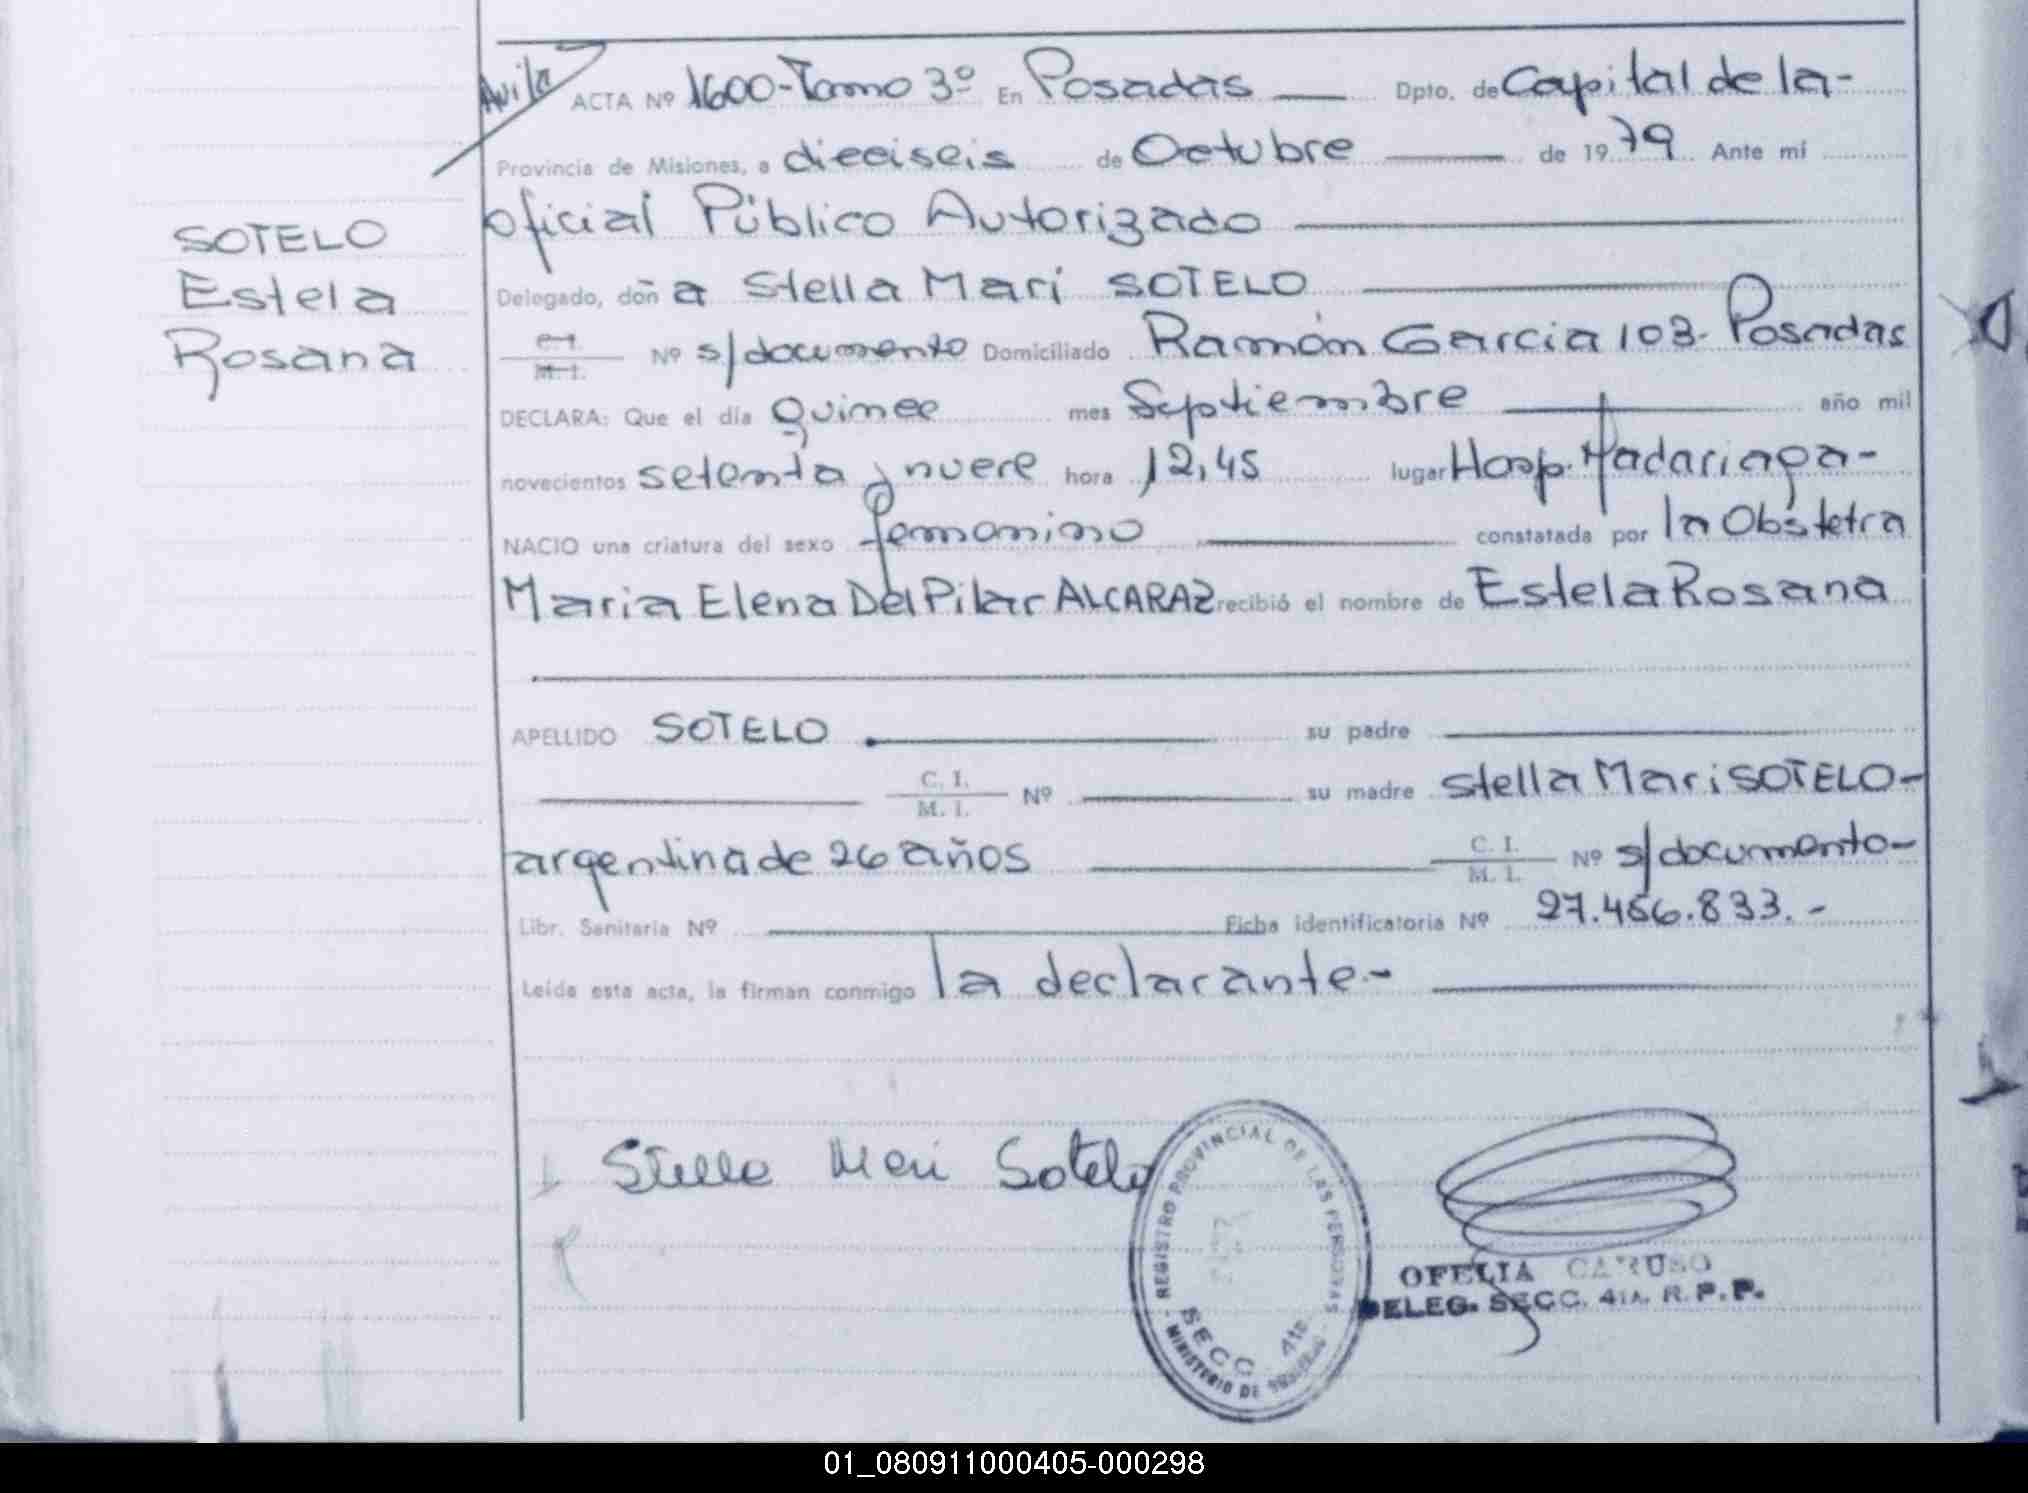 Avila
ACTA Nº 1600-Tomo 3º En Posadas Dpto. de Capital de la-
Provincia de Misiones, a dieciseis de Octubre de 1979 Ante mí
oficial Público Autorizado
SOTELO
Estela
Rosana
Delegado, doña Stella Mari SOTELO
C. I.
M. I. Nº s/documento Domiciliado Ramón Garcia 103. Posadas
DECLARA: Que el día quince mes Septiembre año mil
novecientos setenta y nueve hora 12,45 lugar Hosp. Madariaga-
NACIO una criatura del sexo femenino constatada por la Obstetra
Maria Elena Del Pilar ALCARAZ recibió el nombre de Estela Rosana
APELLIDO SOTELO su padre
C. I.
M. I. Nº su madre Stella Mari SOTELO-
argentina de 26 años C. I.
M. I. Nº s/documento-
Libr. Sanitaria Nº Ficha identificatoria Nº 27.456.833.-
Leída esta acta, la firman conmigo la declarante.-
Stella Mari Sotelo
REGISTRO PROVINCIAL DE LAS PERSONAS
SECC. 4ta
MINISTERIO DE
OFELIA CARUSO
DELEG. SECC. 4TA. R. P. P.
01_080911000405-000298